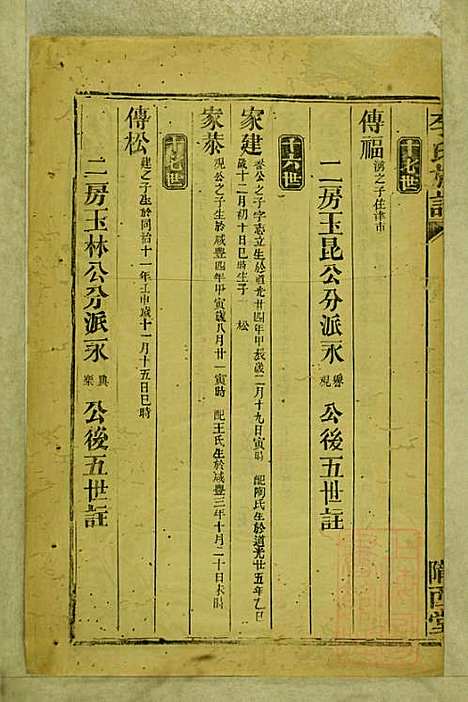 李氏族譜
隴西堂
十七世
傳福
湧之子住津市
二房玉昆公分派永譽祝公後五世註
十六世
家建
譽公之子字志立生於道光廿四年甲辰歲二月十九日寅時 配陶氏生於道光廿五年乙巳
歲十二月初十日巳時生子 松
家恭
祝公之子生於咸豐四年甲寅歲八月廿一寅時 配王氏生於咸豐三年十月二十日未時
十七世
傳松
建之子生於同治十一年壬申歲十一月十五日巳時
二房玉林公分派永典樂公後五世註